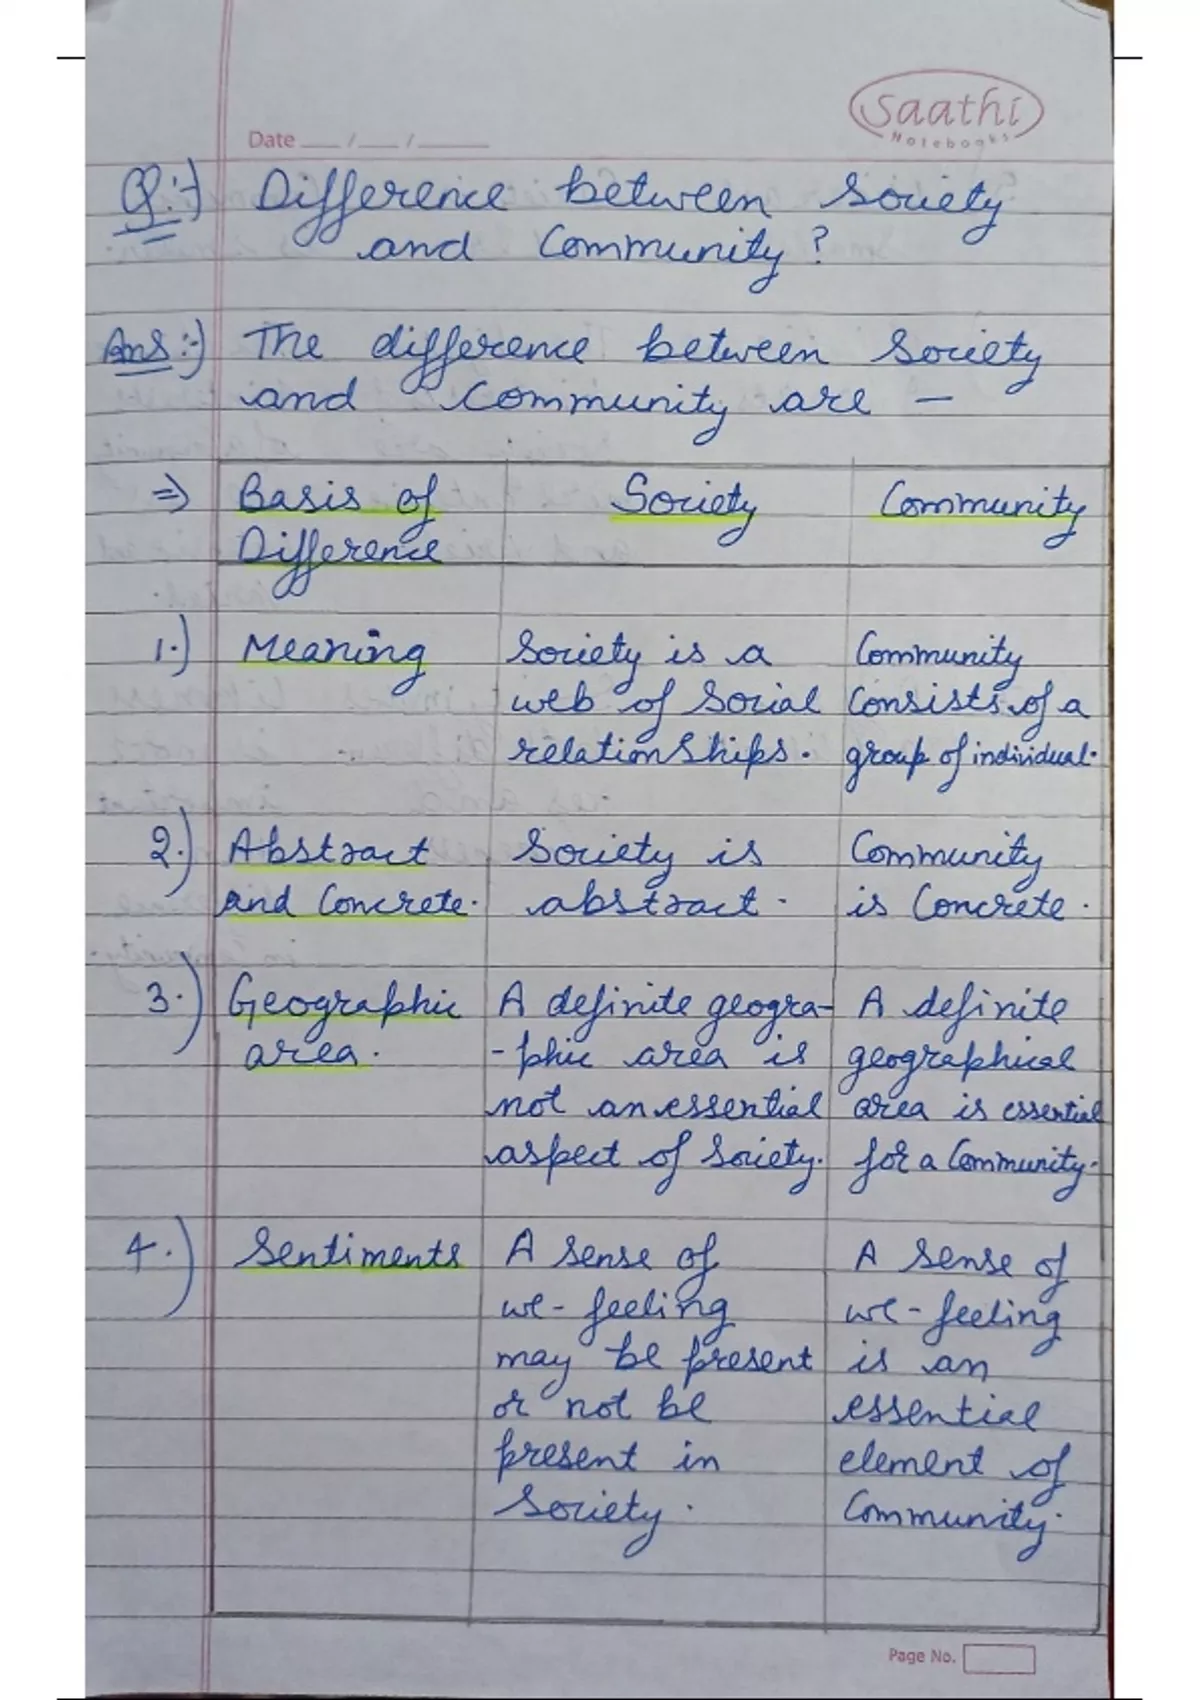 Saathi
Notebooks
Date ___/___/_____
Q:-) Difference between Society
and Community?
Ans:-) The difference between Society
and Community are -
⇒ Basis of Difference
Society
Community
1.) Meaning
Society is a
web of Social
relationships.
Community
Consists of a
group of individual.
2.) Abstract
and Concrete.
Society is
abstract.
Community
is Concrete.
3.) Geographic
area.
A definite geogra-
-phic area is
not an essential
aspect of Society.
A definite
geographical
area is essential
for a Community.
4.) Sentiments
A sense of
we-feeling
may be present
or not be
present in
Society.
A sense of
we-feeling
is an
essential
element of
Community.
Page No.